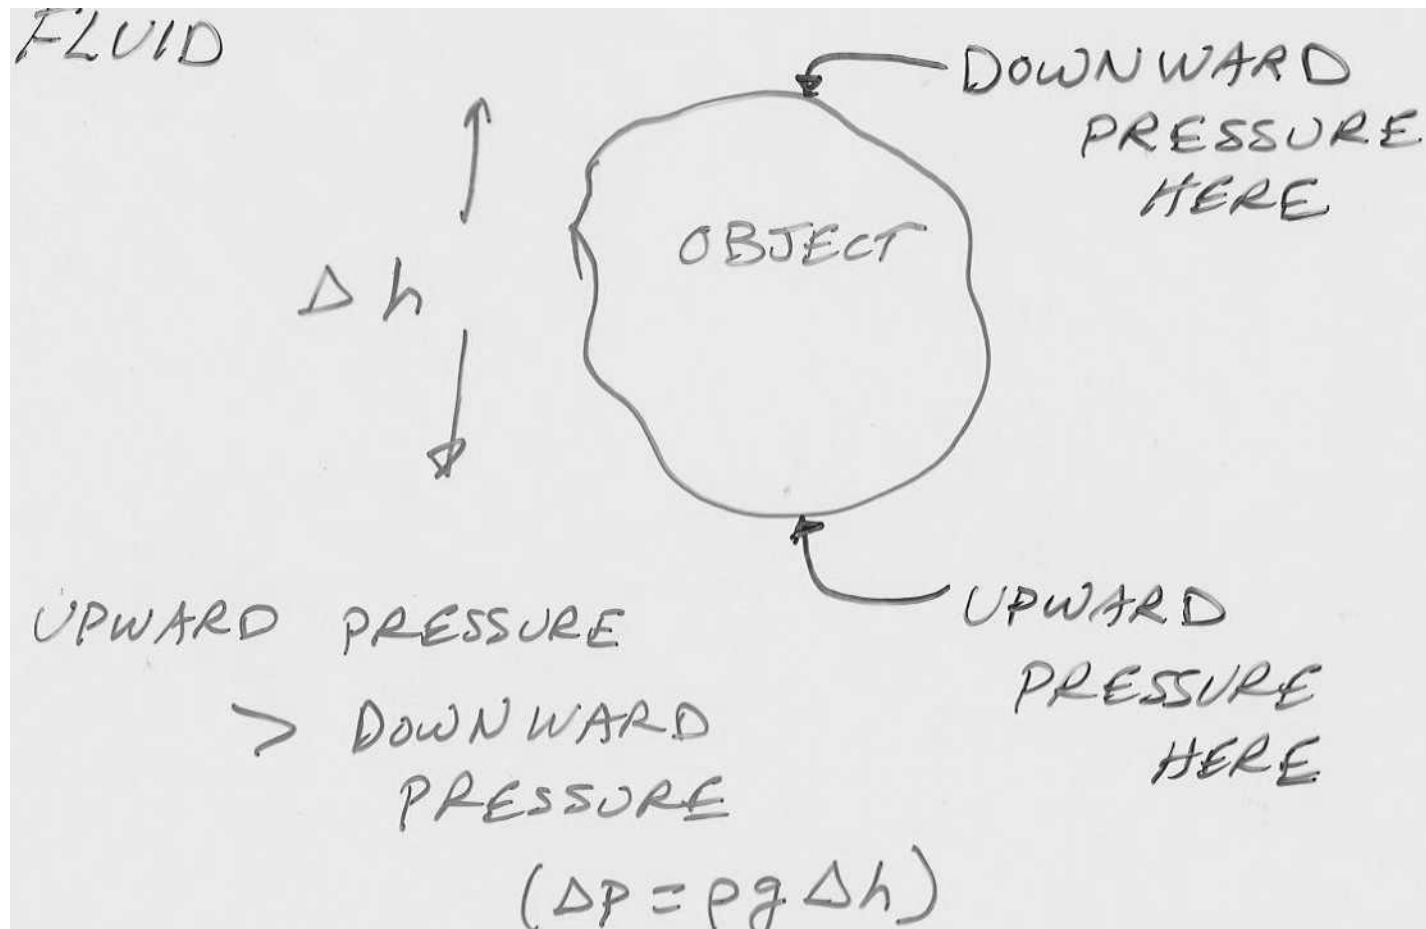 FLUID
DOWNWARD
PRESSURE
HERE
OBJECT
Δh
UPWARD
PRESSURE
HERE
UPWARD PRESSURE
> DOWNWARD
PRESSURE
(ΔP = ρg Δh)